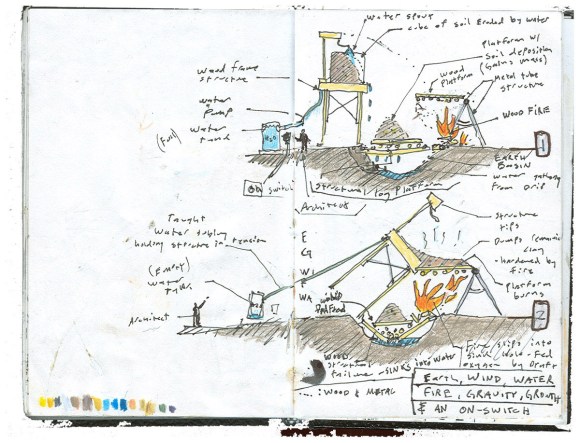 water spout
cube of soil Eroded by water
Platform w/
Soil deposition
(Gains mass)
wood frame
structure
wood
Platform
Metal tube
structure
water
pump
WOOD FIRE
(Full)
water
tank
H2O
1
on
switch
Structural Log Platform
EARTH
BASIN
water gathering
from Drip
Architect
Taught
Water tubing
holding structure in tension
E
structure
tips
Dumps ceramic
clay
-hardened by
fire
Platform
burns
(Empty)
water
H2O
WA
Architect
2
Wood
structural
failure - SINKS into water
Fire slips into
oxygen by Draft
: WOOD & METAL
Earth, WIND, WATER
FIRE, GRAVITY, GROWTH
& AN ON-SWITCH